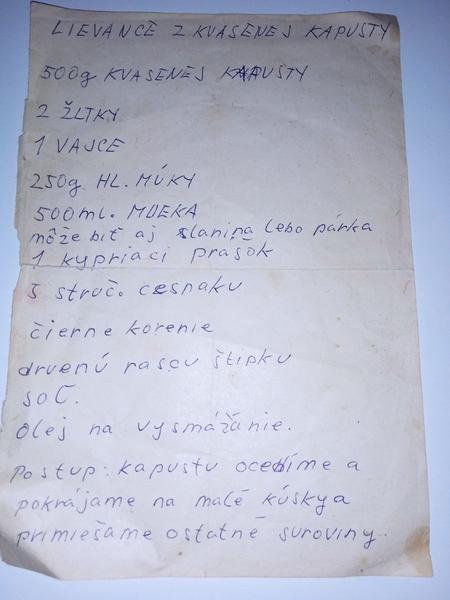 LIEVANCE Z KVASENEJ KAPUSTY
500g KVASENEJ KAPUSTY
2 ŽLTKY
1 VAJCE
250g HL. MÚKY
500ml. MLIEKA
môže biť aj slanina lebo párka
1 kypriaci prašok
5 struč. cesnaku
čierne korenie
drvenú rascu štipku
soľ.
Olej na vysmážanie.
Postup: kapustu ocedíme a
pokrájame na malé kúsky a
primiešame ostatné suroviny.